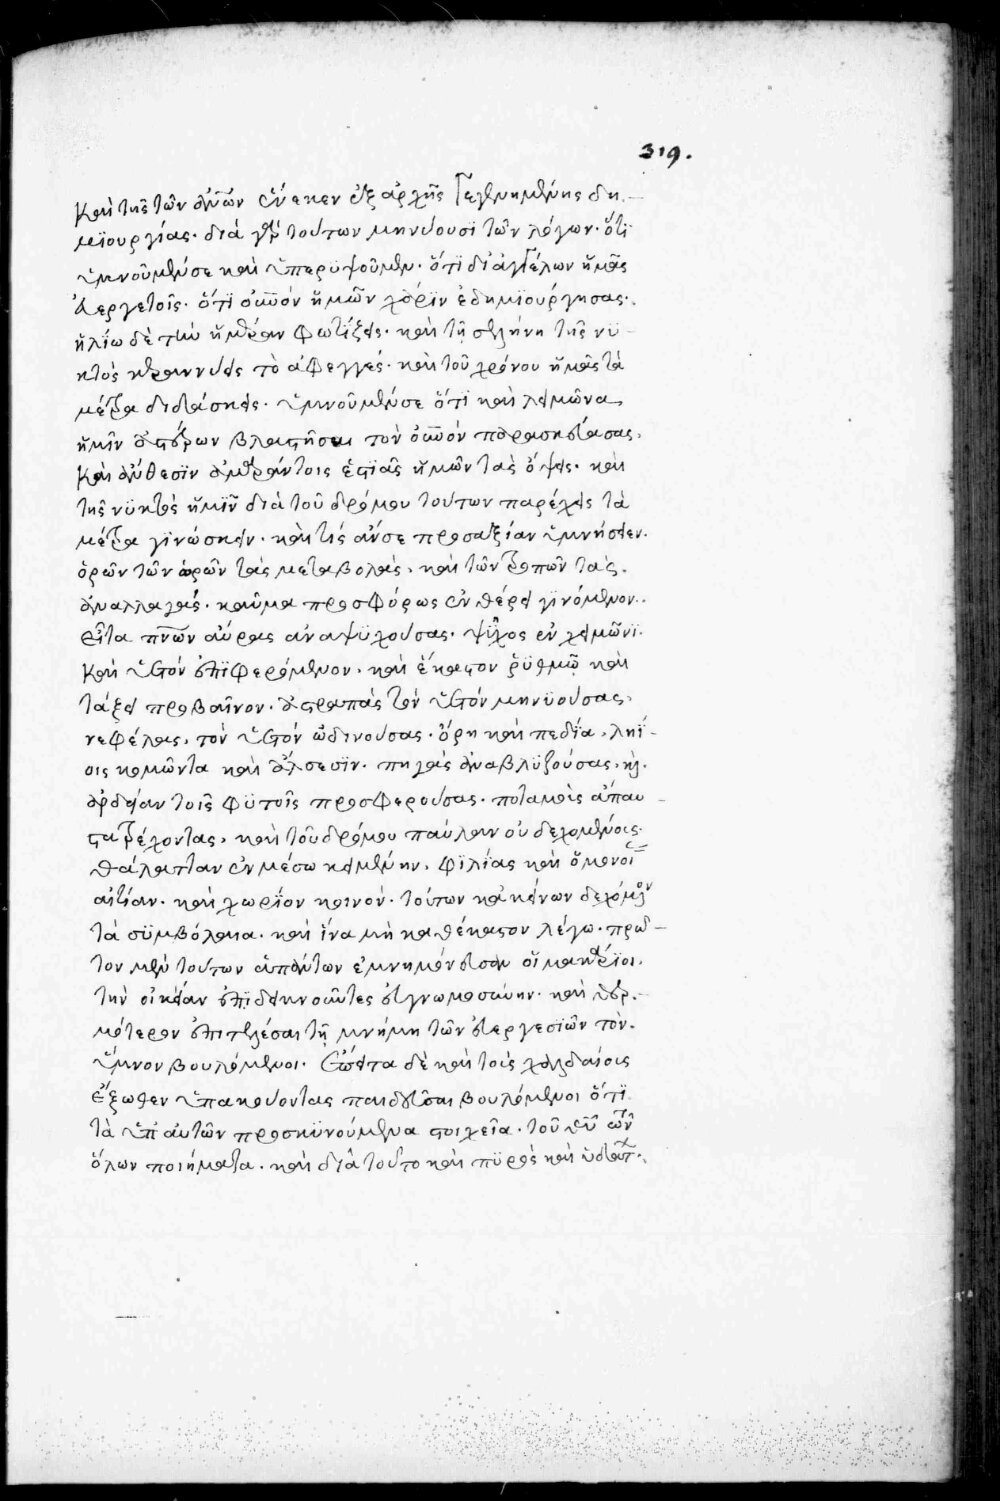 319.
καὶ τῆς τῶν ἀνῶν ἕνεκεν ἐξ ἀρχῆς γεγενημένης δη
μϊουργίας. διὰ γὰρ τούτων μηνύουσϊ τῶν λόγων. ὅτϊ
ὑμνοῦμέν σε καὶ ὑπερυψοῦμεν. ὅτϊ δι' ἀγγέλων ἡμᾶς
εὐεργετεῖς. ὅτϊ οὐνὸν ἡμῶν χάρϊν ἐδημϊούργησας.
ἡλίω δὲ τὴν ἡμέραν φωτίζεις. καὶ τῆ σελήνη τῆς νϋ
κτὸς κεραννύεις τὸ ἀφεγγές. καὶ τοῦ χρόνου ἡμᾶς τὰ
μέτρα διδάσκεις. ὑμνοῦμέν σε ὅτϊ καὶ λειμῶνα
ἡμῖν ἀστέρων βλαστῆσαι τὸν οὐνὸν παρασκευάσας.
καὶ ἄνθεσϊν ἀμαράντοις ἑστϊᾶς ἡμῶν τὰς ὄψεις. καὶ
τῆς νϋκτὸς ἡμῖν διὰ τοῦ δρόμου τούτων παρέχεις τὰ
μέτρα γϊνώσκειν. καὶ τίς ἄν σε πρὸς ἀξίαν ὑμνήσειεν.
ὁρῶν τῶν ὡρῶν τὰς μεταβολὰς, καὶ τῶν τροπῶν τὰς
ἐναλλαγάς. καῦμα προσφόρως ἐν θέρει γϊνόμενον.
εἶτα πνῶν αὔρας ἀναψϋχούσας. ψῦχος ἐν χειμῶνϊ.
καὶ ὑετὸν ἐπϊφερόμενον. καὶ ἕκαστον ῥϋθμῶ καὶ
τάξει προβαῖνον. ἀστραπὰς τὸν ὑετὸν μηνϋούσας.
νεφέλας, τὸν ὑετὸν ὠδινούσας. ὄρη καὶ πεδΐα, ληΐ
οις κομῶντα καὶ ἄλσεσϊν. πηγὰς ἀναβλϋζούσας, κὶ
ἀρδείαν τοῖς φϋτοῖς προσφερούσας. ποταμοὺς ἄπαυ
στα τρέχοντας, καὶ τοῦ δρόμου παῦλαν οὐ δεχομένους.
θάλατταν ἐν μέσω κειμένην. φϊλίας καὶ ὁμονοί
αἰτίαν. καὶ χωρΐον κοινὸν. τούτων κἀκείνων δεχόμενον
τὰ σϋμβόλαια. καὶ ἵνα μὴ καθέκαστον λέγω. πρῶ
τον μὲν τούτων ἁπάντων ἐμνημόνευσαν οἱ μακάρϊοι.
τὴν οἰκείαν ἐπϊδεικνοῦντες εὐγνωμοσύνην. καὶ θερ
μότερον ἐπιτελέσαι τῆ μνήμη τῶν εὐεργεσϊῶν τὸν
ὕμνον βουλόμενοι. ἔπειτα δὲ καὶ τοὺς χαλδαίους
ἔξωθεν ὑπακούοντας παιδεῦσαι βουλόμενοι ὅτϊ
τὰ ὑπ' αὐτῶν προσκϋνούμενα στοιχεῖα. τοῦ θῦ τῶν
ὅλων ποιήματα. καὶ διὰ τοῦτο καὶ πϋρὸς καὶ ὕδατ